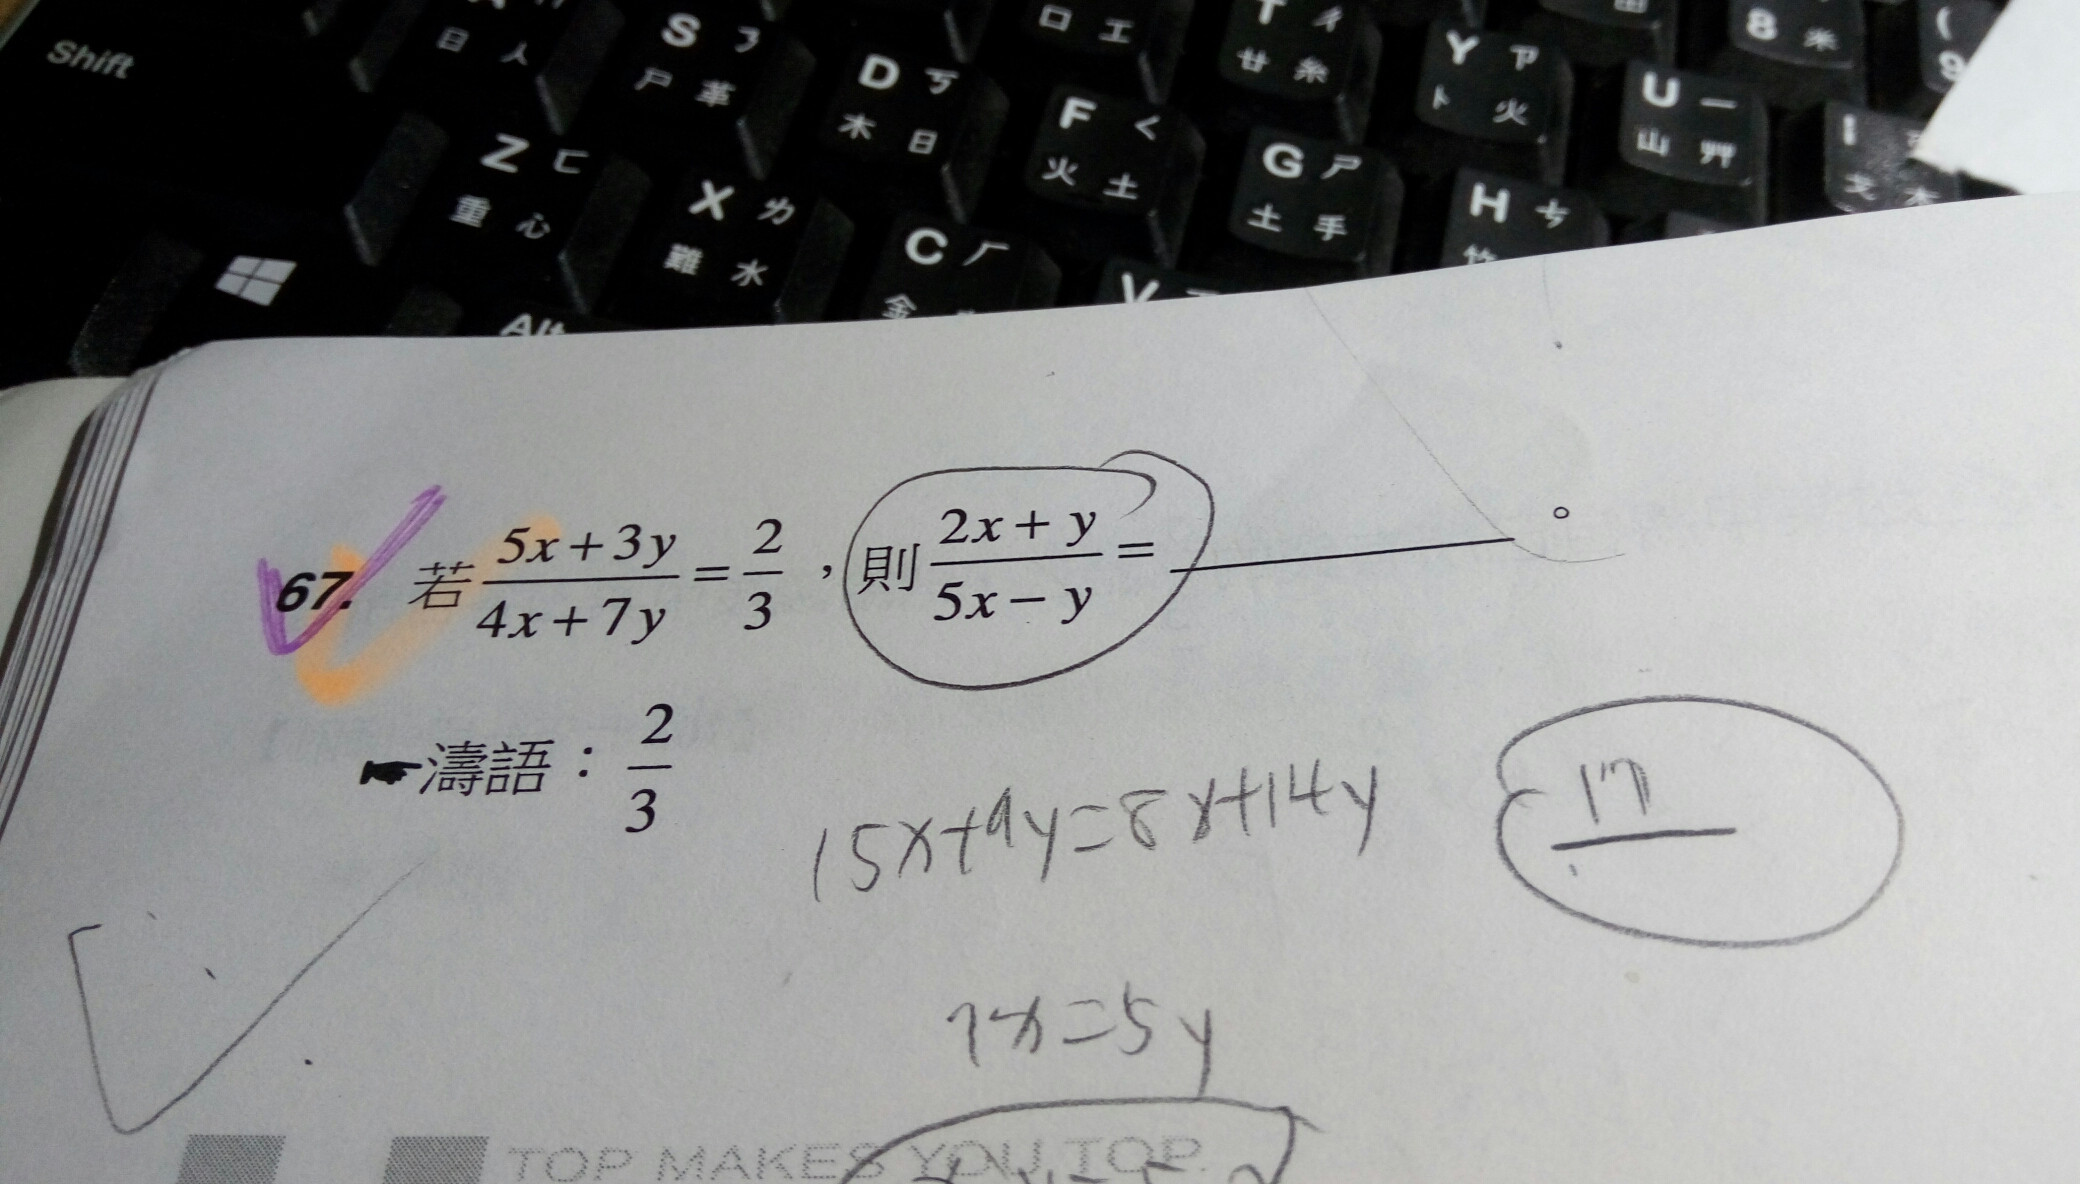 Shift
A 日 人
S ㄋ 尸 革
D ㄎ 木 日
口 工
T ㄔ 廿 糸
Y ㄗ 卜 火
8 米
9
Z ㄈ 重 心
X ㄌ 難 水
F ㄑ 火 土
G ㄕ 土 手
U ㄧ 山 艸
C ㄏ 金
H ㄘ 竹
V
Alt
67. 若 (5x+3y)/(4x+7y) = 2/3 ,則 (2x+y)/(5x−y) = ________ 。
濤語: 2/3
15x+9y=8x+14y
17
7x=5y
TOP MAKES YOU TOP